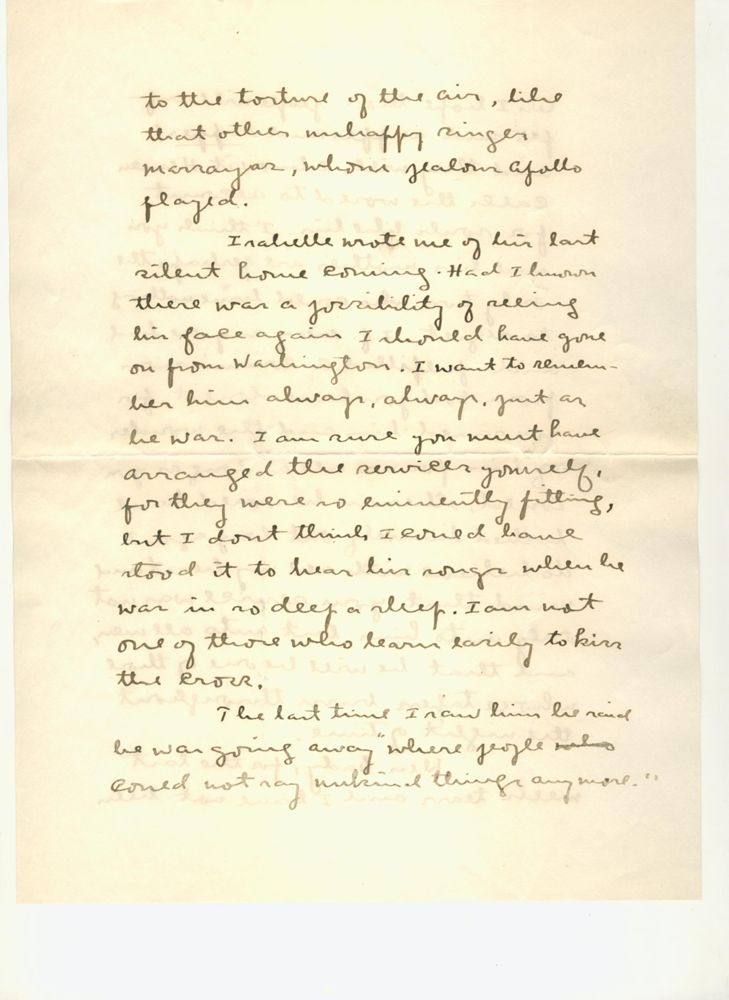 to the torture of the air, like
that other unhappy singer
Marsayas, whom jealous Apollo
flayed.
Isabelle wrote me of his last
silent home coming. Had I known
there was a possibility of seeing
his face again I should have gone
on from Washington. I want to remem-
ber him always, always, just as
he was. I am sure you must have
arranged the services yourself,
for they were so eminently fitting,
but I dont think I could have
stood it to hear his songs when he
was in so deep a sleep. I am not
one of those who learn easily to kiss
the cross.
The last time I saw him he said
he was going away "where people who
could not say unkind things any more."